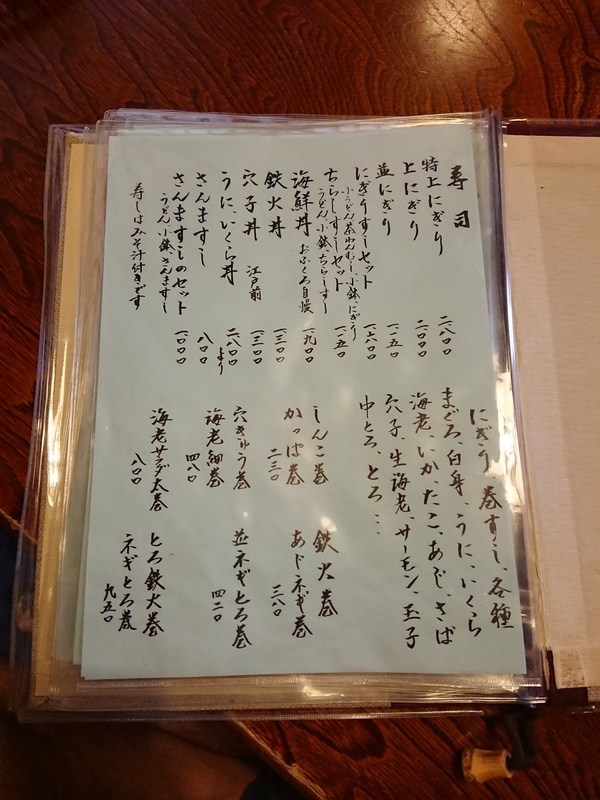 寿司
特上にぎり 二八〇〇
上にぎり 二〇〇〇
並にぎり 一一五〇
にぎりすしセット 一六〇〇
小うどん、茶わんむし、小鉢、にぎり
ちらしすしセット 一一五〇
うどん、小鉢、ちらしすし
海鮮丼 おふくろ自慢 一九〇〇
鉄火丼 一三〇〇
穴子丼 江戸前 一三〇〇
うに、いくら丼 二八〇〇より
さんますし 八〇〇
さんますしのセット 一〇〇〇
うどん、小鉢、さんますし
寿しはみそ汁付きです
にぎり 巻すし、各種
まぐろ、白身、うに、いくら
海老、いか、たこ、あじ、さば
穴子、生海老、サーモン、玉子
中とろ、とろ…
しんこ巻
かっぱ巻
二三〇
穴きゅう巻
海老細巻
四八〇
海老サラダ太巻
八〇〇
鉄火巻
あじネギ巻
三八〇
並ネギとろ巻
四二〇
とろ鉄火巻
ネギとろ巻
九五〇